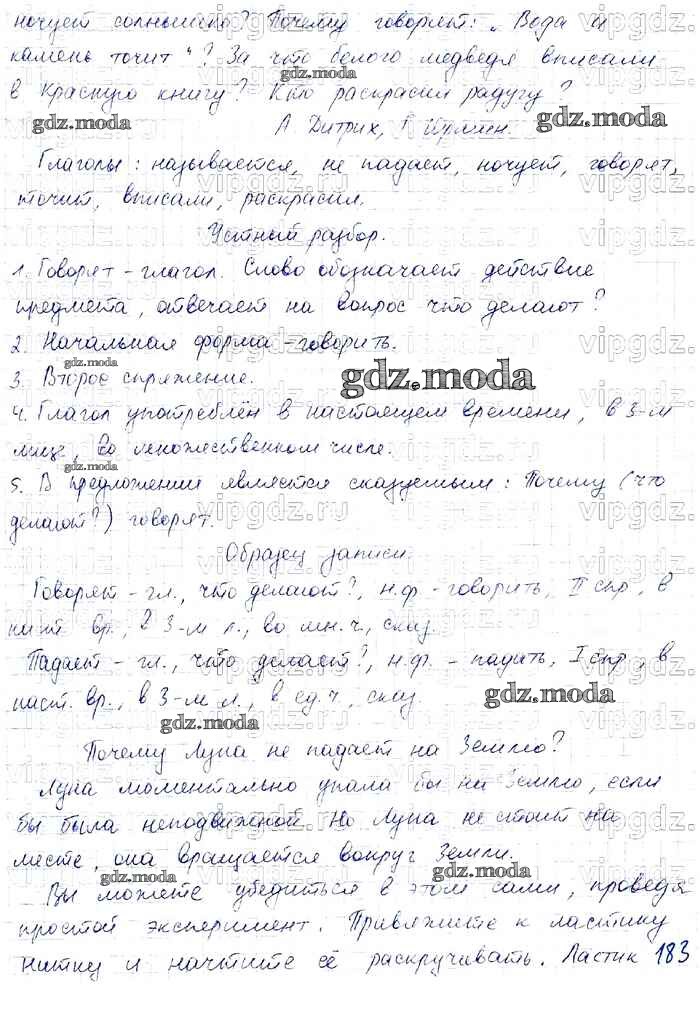 ночует солнышко? Почему говорят: „Вода и
камень точит"? За что белого медведя вписали
в Красную книгу? Кто раскрасил радугу?
А. Дитрих, Г. Юрмин.
Глаголы: называется, не падает, ночует, говорят,
точит, вписали, раскрасил.
Устный разбор.
1. Говорят - глагол. Слово обозначает действие
предмета, отвечает на вопрос что делают?
2. Начальная форма - говорить.
3. Второе спряжение.
4. Глагол употреблён в настоящем времени, в 3-м
лице, во множественном числе.
5. В предложении является сказуемым: Почему (что
делают?) говорят.
Образец записи.
Говорят - гл., что делают?, н.ф. - говорить, II спр., в
наст. вр., в 3-м л., во мн. ч., сказ.
Падает - гл., что делает?, н.ф. - падать, I спр., в
наст. вр., в 3-м л., в ед. ч., сказ.
Почему Луна не падает на Землю?
Луна моментально упала бы на Землю, если
бы была неподвижной. Но Луна не стоит на
месте, она вращается вокруг Земли.
Вы можете убедиться в этом сами, проведя
простой эксперимент. Привяжите к ластику
нитку и начните её раскручивать. Ластик 183
gdz.moda
vipgdz.ru